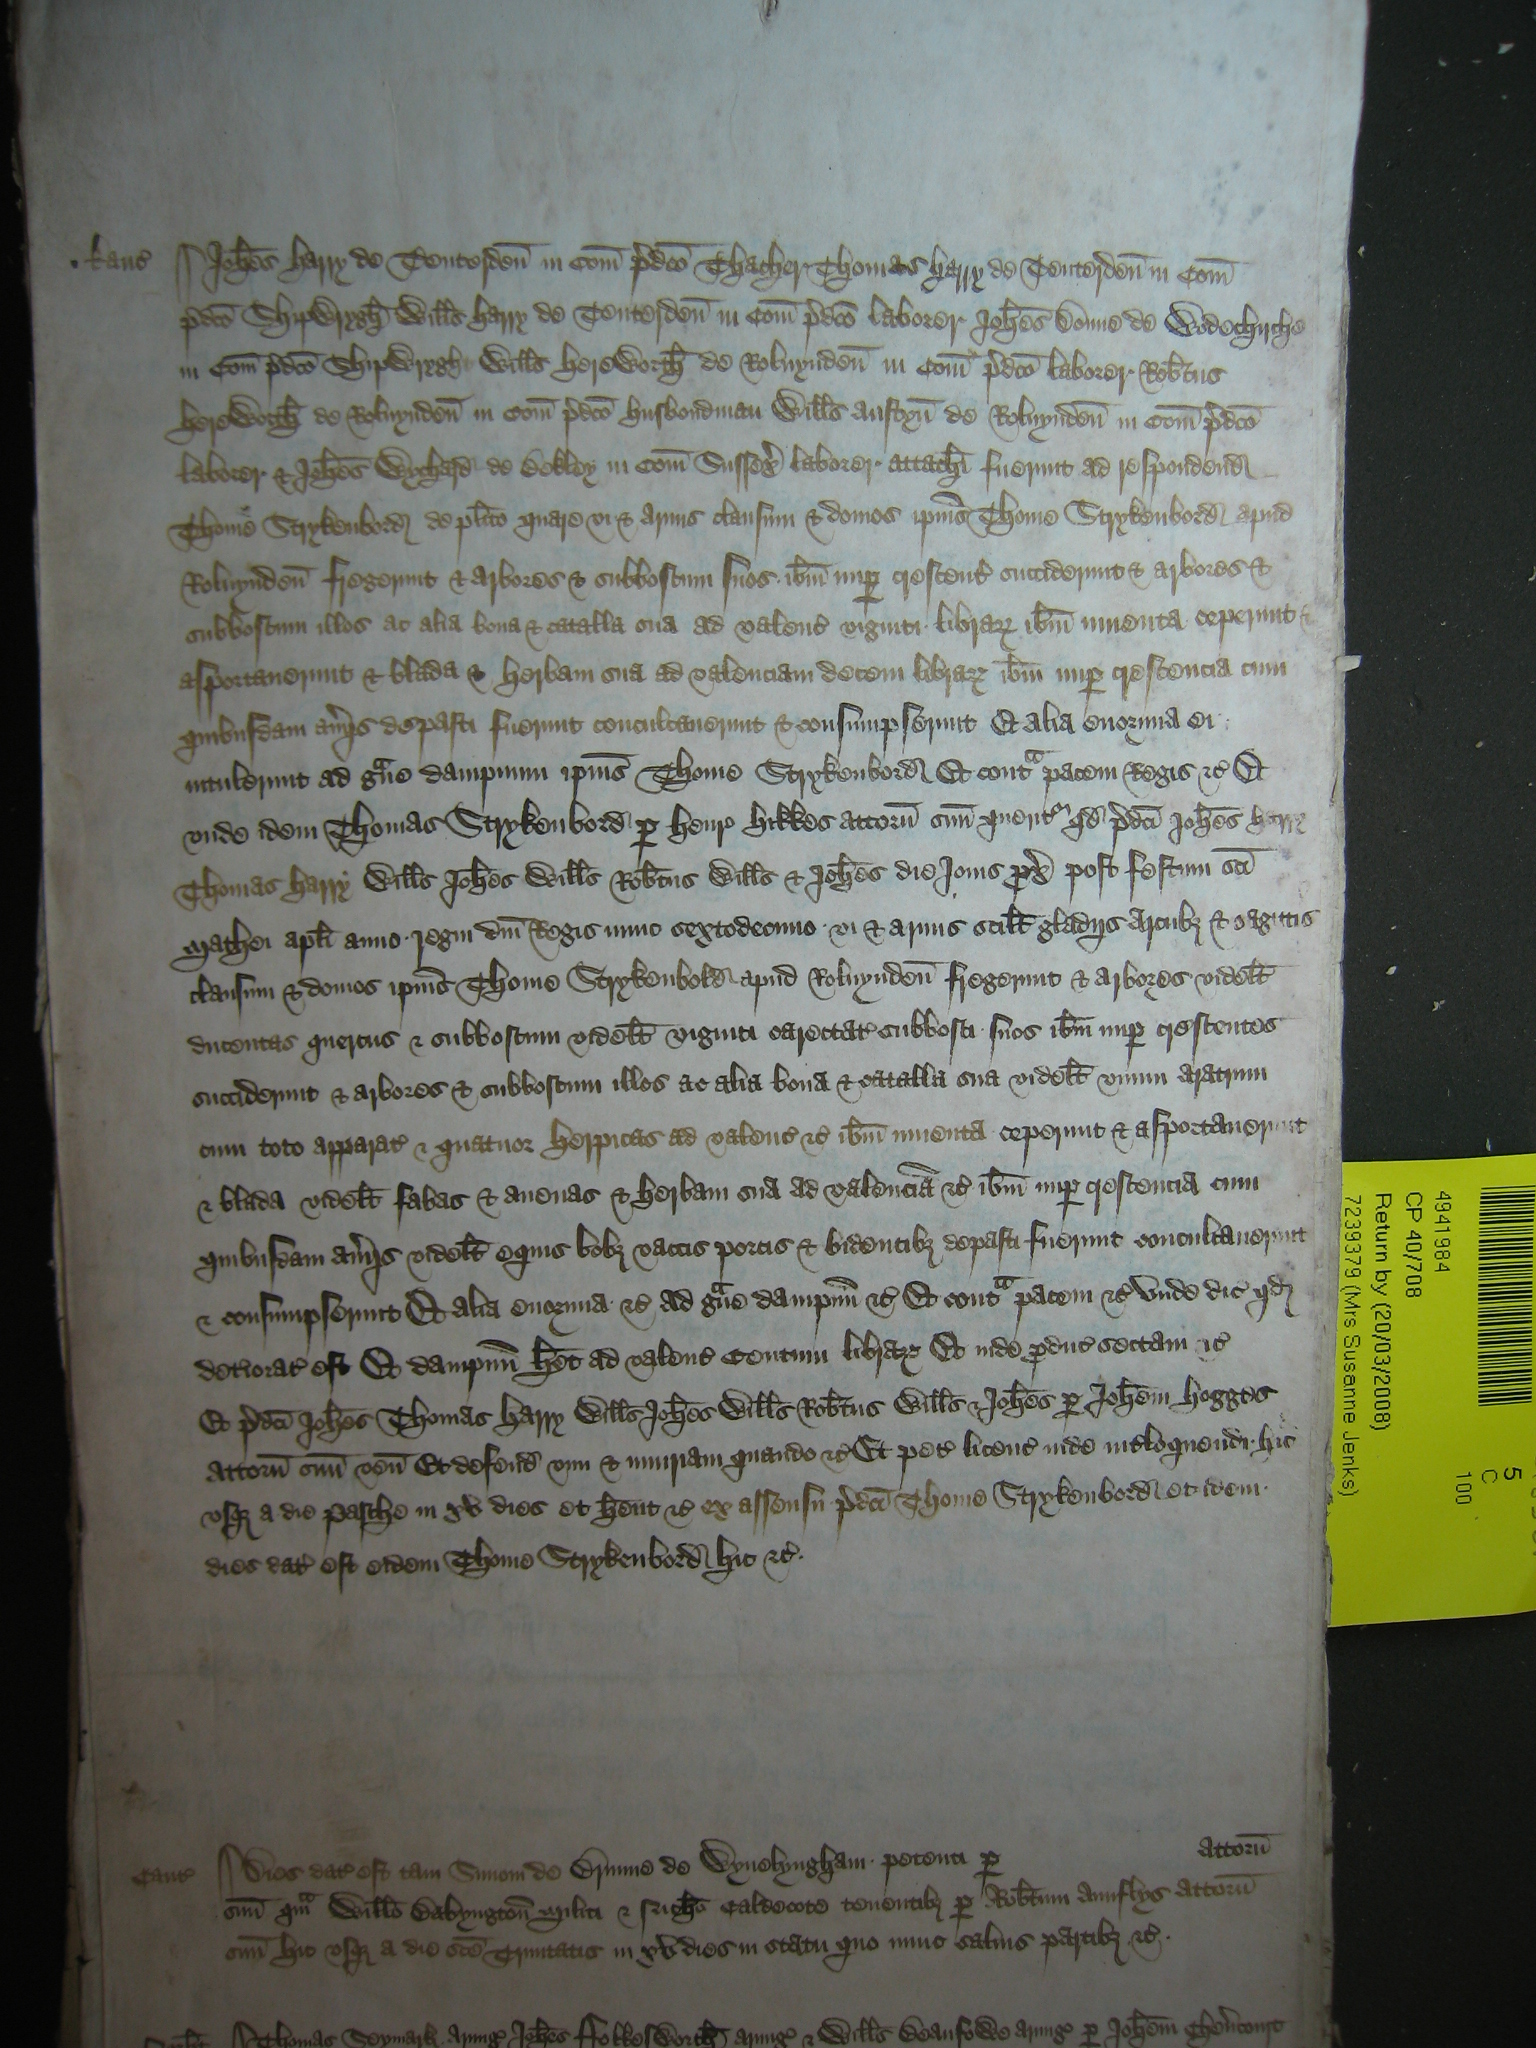 Kanc Joh̄es Harry de Tenterden̄ in Com̄ p̄dc̄o Thacher Thomas Harry de Tenterden̄ in Com̄
p̄dc̄o Shipwrygh̄t Will̄s Harry de Tenterden̄ in Com̄ p̄dc̄o laborer Joh̄es Donne de Wodechirche
in Com̄ p̄dc̄o Shipwryght Will̄s Hereworth̄ de Roluynden̄ in Com̄ p̄dc̄o laborer Rob̄tus
Hereworth̄ de Roluynden̄ in Com̄ p̄dc̄o husbondman Will̄s Austyn̄ de Roluynden̄ in Com̄ p̄dc̄o
laborer & Joh̄es Wychard de Bekley in Com̄ Sussex̄ laborer attach̄i fuerunt ad respondend
Thome Strykenbord de pl̄ito quare vi & armis clausum & domos ip̄ius Thome Strykenbord apud
Roluynden̄ fregerunt & arbores & subboscum suos ib̄m nup crescent succiderunt & arbores &
subboscum illos ac alia bona & catalla sua ad valenc viginti librarꝝ ib̄m inuenta ceperunt &
asportauerunt & blada & herbam sua ad valenciam decem librarꝝ ib̄m nup crescencia cum
quibusdam am̄is depasti fuerunt conculcauerunt & consumpserunt Et alia enormia ei
intulerunt ad gͣue dampnum ip̄ius Thome Strykenbord Et contͣ pacem Regis &c Et
vnde idem Thomas Strykenbord ꝑ Henr Hikkes attorn̄ suū querit qd p̄dc̄i Joh̄es Harry
Thomas Harry Will̄s Joh̄es Will̄s Rob̄tus Will̄s & Joh̄es die Jouis px̄ post festum sc̄i
Mathei apl̄i anno regni dn̄i Regis nunc sextodecimo vi & armis scil̄t gladijs arcubꝫ & sagittis
clausum & domos ip̄ius Thome Strykenbold apud Roluynden̄ fregerunt & arbores videl̄t
ducentas quercus & subboscum videl̄t viginti carectat subbosci suos ib̄m nup crescentes
succiderunt & arbores & subboscum illos ac alia bona & catalla sua videl̄t vnum aratrum
cum toto apparat & quatuor herpicas ad valenc &c ib̄m inuenta ceperunt & asportauerunt
& blada videl̄t fabas & auenas & herbam sua ad valenciā &c ib̄m nup crescencia cum
quibusdam am̄is videl̄t equis bobꝫ vaccis porcis & bidentibꝫ depasti fuerunt conculcauerunt
& consumpserunt Et alia enormia &c ad gͣue dampnū &c Et contͣ pacem &c Vnde dic qd
deteriorat est Et dampnū h̄et ad valenc Centum librarꝝ Et inde ꝓduc sectam &c
Et p̄dc̄i Joh̄es Thomas Harry Will̄s Joh̄es Will̄s Rob̄tus Will̄s & Joh̄es ꝑ Joh̄em Hogges
attorn̄ suū ven̄ Et defend vim & iniuriam quando &c Et pet licenc inde int̄loquendi hic
vsqꝫ a die Pasche in xv dies et h̄ent &c ex assensu p̄dc̄i Thome Strykenbord et idem
dies dat est eidem Thome Strykenbord hic &c
Cant Dies dat est tam Simoni de Brunne de Wynelyngham petenti ꝑ attorn̄
suū qͣm Will̄o Babyngton̄ militi & Caldecote tenentibꝫ ꝑ Rob̄tum Annslys attorn̄
suū hic vsqꝫ a die sc̄e Trinitatis in xv dies in statu quo nunc saluis partibꝫ &c
Thomas Seymark armig Joh̄es Folkesworth̄ armig & Will̄s Beaufowe armig ꝑ Joh̄em
4941984
CP 40/708
Return by (20/03/2008)
7239379 (Mrs Susanne Jenks)
5
C
100